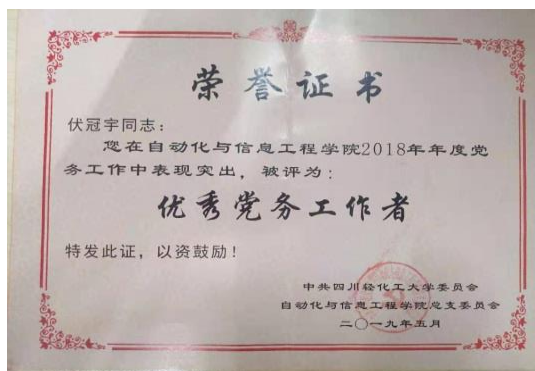 荣誉证书
伏冠宇同志：
您在自动化与信息工程学院2018年年度党
务工作中表现突出，被评为：
优秀党务工作者
特发此证，以资鼓励！
中共四川轻化工大学委员会
自动化与信息工程学院总支委员会
二〇一九年五月